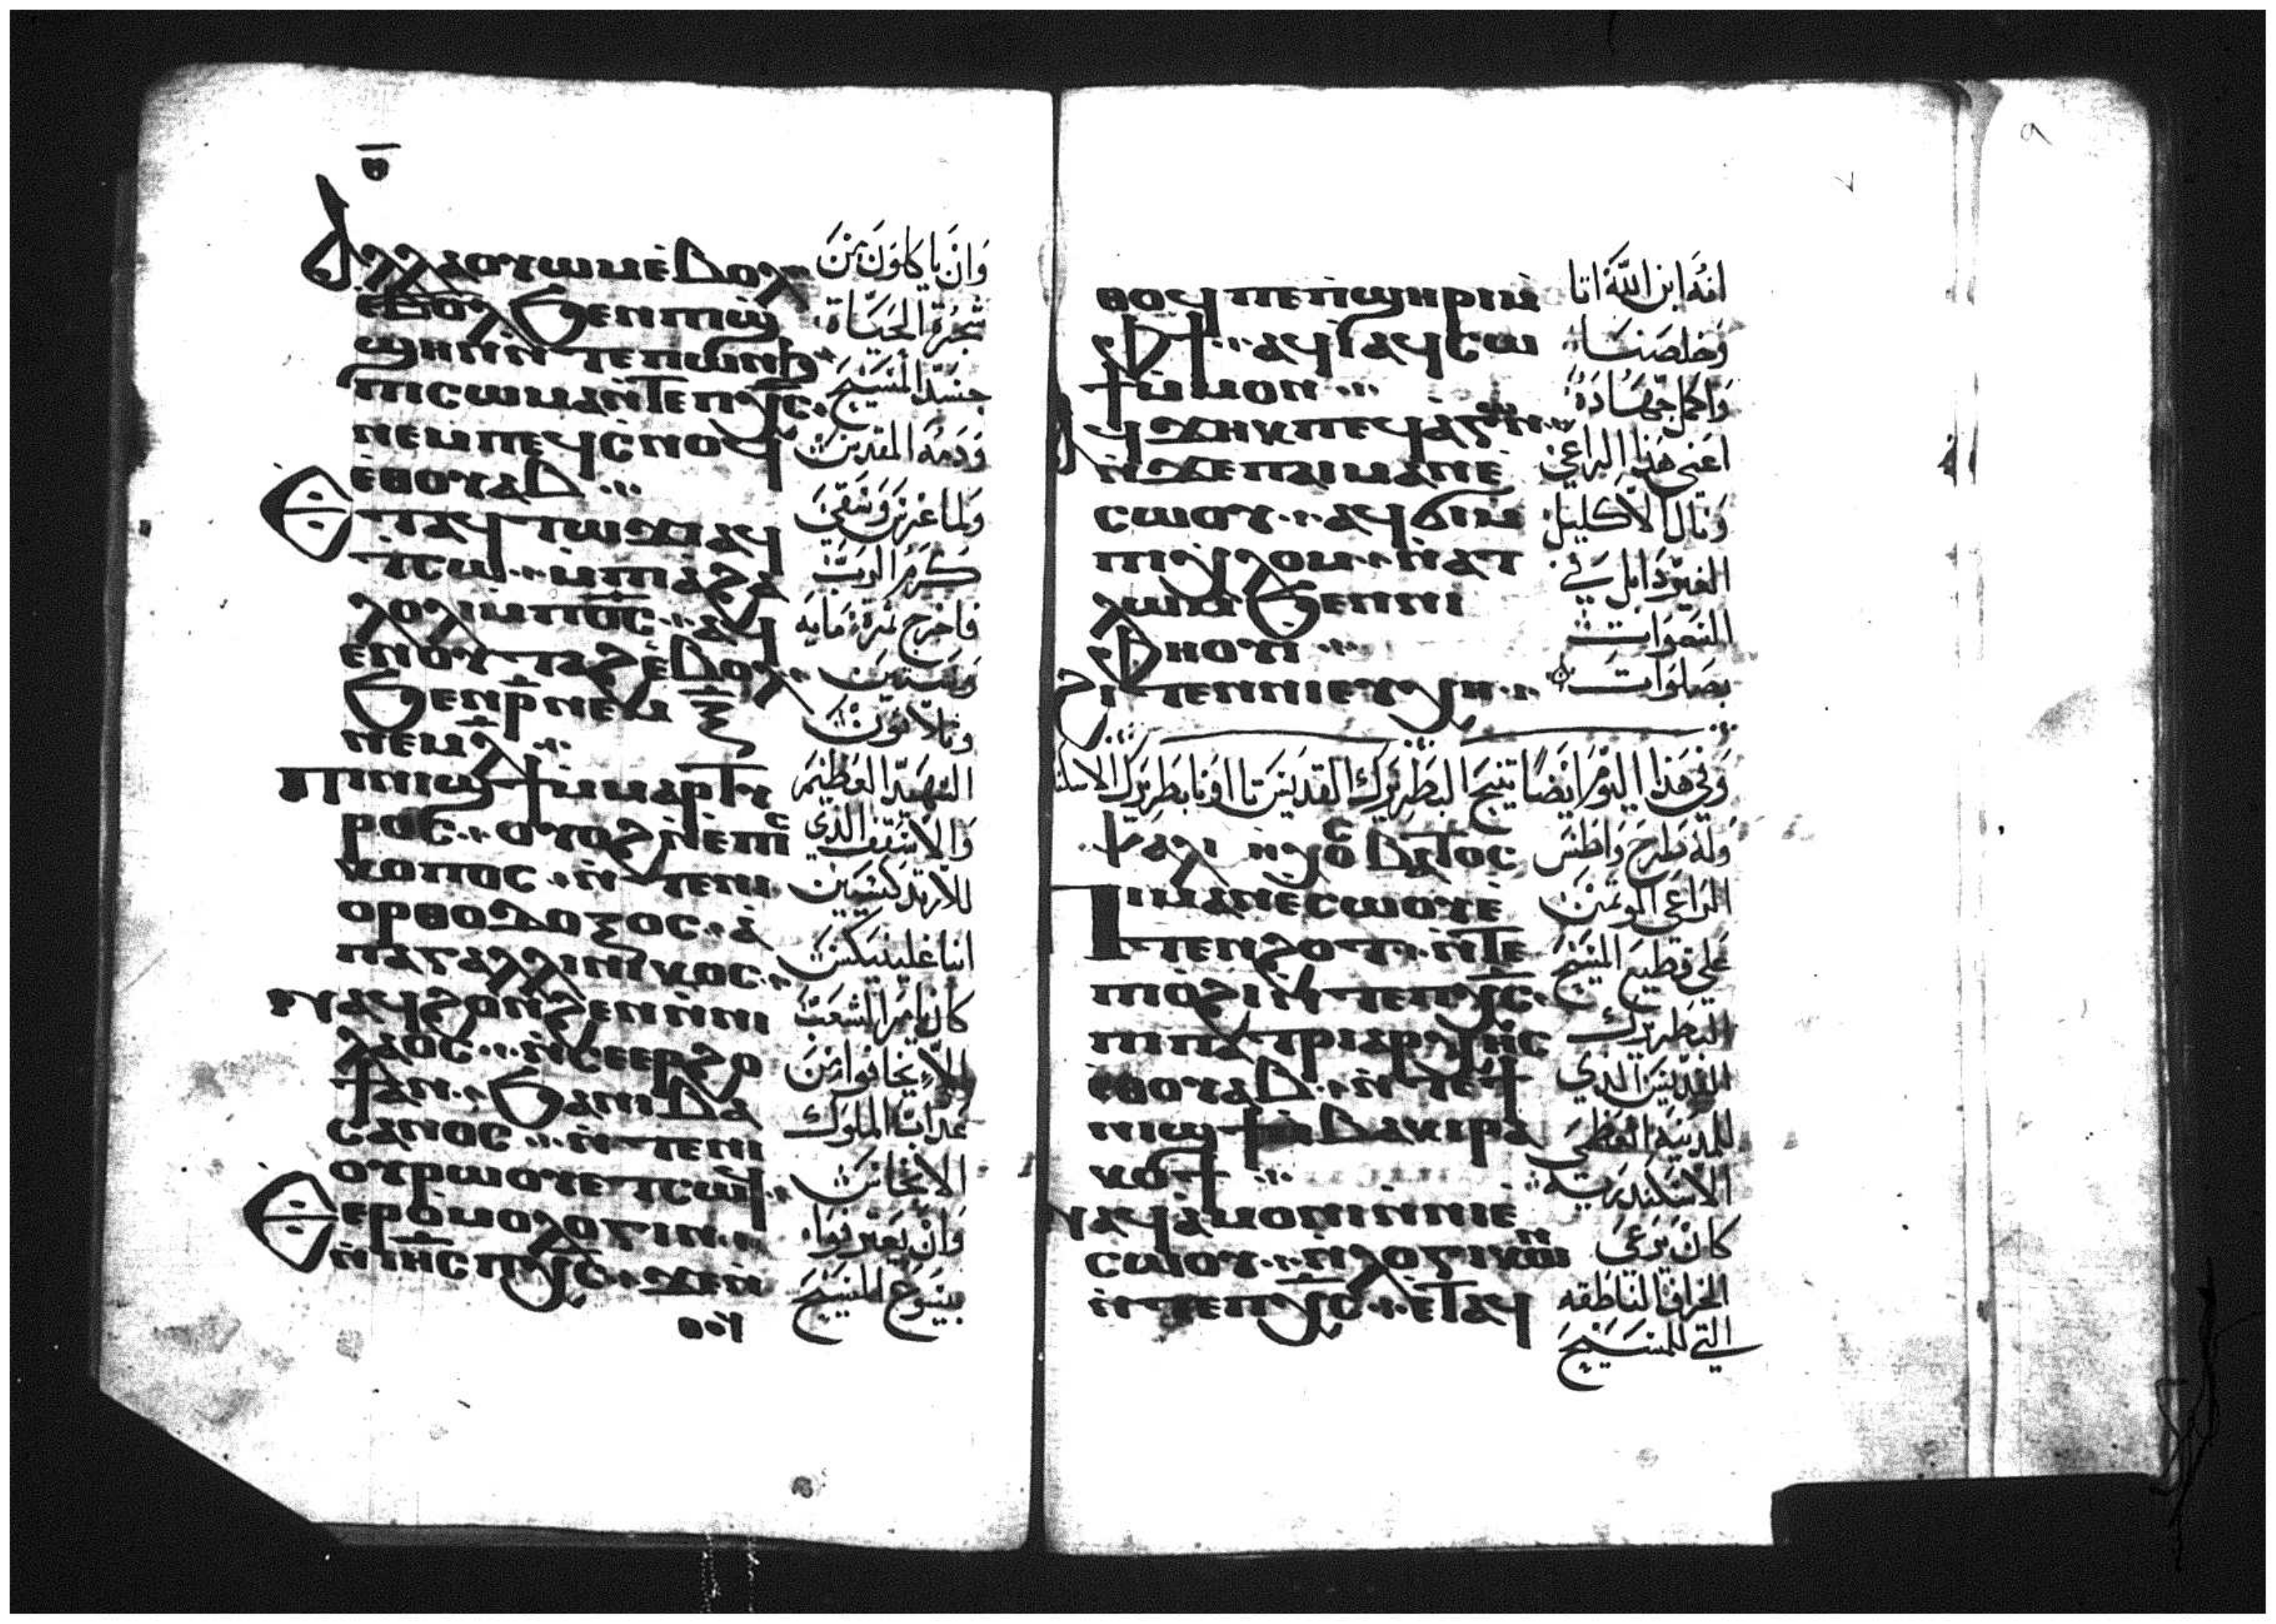 ⲑ̅
ⲁⲗⲗⲁ ⲟⲩⲱⲙ ⲉ̀ⲃⲟⲗ
ⲉ̀ⲃⲟⲗ ϧⲉⲛ ⲡⲓϣ
ϣⲏⲛ ⲛ̀ⲧⲉ ⲡⲱⲛϧ
ⲡⲓⲥⲱⲙⲁ ⲛ̀ⲧⲉ ⲡⲭ̅ⲥ̅
ⲛⲉⲙ ⲡⲉϥⲥⲛⲟϥ
ⲉⲑⲟⲩⲁⲃ
ⲉⲧⲁϥⲧⲱϫⲓ ⲁϥ
ⲧ̀ⲥⲱ ⲙ̀ⲡⲓⲁϩⲁ
ⲗⲟⲗⲓ ⲙ̀ⲡⲟ̅ⲥ̅ ⲁϥ
ⲉⲛⲟⲩⲧⲁϩ ⲉ̀ⲃⲟⲗ
ϧⲉⲛ ⲣ̅ ⲛⲉⲙ ⲝ̅
ⲛⲉⲙ ⲗ̅
ⲡⲓⲛⲓϣϯ ⲙ̀ⲙⲁⲣⲧⲏ
ⲣⲟⲥ ⲟⲩⲟϩ ⲛ̀ⲉⲡⲓⲥ
ⲕⲟⲡⲟⲥ ⲛ̀ⲧⲉ ⲛⲓ
ⲟⲣⲑⲟⲇⲟⲝⲟⲥ ⲁ̀
ⲡⲁ ⲅⲁⲗⲗⲓⲛⲓⲕⲟⲥ
ⲛⲁϥϩⲟⲛϩⲉⲛ ⲛ̀ⲛⲓ
ⲗⲁⲟⲥ ⲛ̀ⲥⲉⲉⲣϩⲟ
ϯ ⲁⲛ ϧⲁ ⲛⲓⲃⲁ
ⲥⲁⲛⲟⲥ ⲛ̀ⲧⲉ ⲛⲓ
ⲟⲩⲣⲱⲟⲩ ⲉⲧⲥⲱϥ
ⲉⲣⲟ̀ⲙⲟⲗⲟⲅⲓⲛ
ⲛ̀ⲓⲏⲥ ⲡⲭ̅ⲥ̅ ϫⲉ ⲛ̀
ⲑⲟϥ
وان ياكلون من
شجرة الحياة
جسد المسيح
ودمه المقدس
ولما غرس وسقي
كرم الرب
فاخرج ثمرة مايه
وستين
وتلاتون
الشهيد العظيم
والاسقف الذي
للارتدكسيين
انبا غلينيكس
كان يامر الشعب
الا يخافوا من
عداب الملوك
الانجاس
وان يعترفوا
بيسوع المسيح
ⲑⲟϥ ⲡⲉ ⲡ̀ϣⲏⲣⲓ ⲙ̀
ⲫϯ ⲁϥⲓ̀ ⲁϥⲥⲱ
ϯ ⲙ̀ⲙⲟⲛ
ⲁϥϫⲏⲕ ⲡⲉϥⲁⲅⲱⲛ
ⲛ̀ϫⲉ ⲡⲁⲓⲙⲁⲛⲉ̀
ⲥⲱⲟⲩ ⲁϥϭⲓ ⲙ̀
ⲡⲓⲭⲗⲟⲙ ⲛ̀ⲁⲧ
ⲗⲱⲙ ϧⲉⲛ ⲛⲓ
ⲫⲏⲟⲩⲓ
ϩⲓⲧⲉⲛ ⲛⲓⲉⲩⲭⲏ
انه ابن الله اتا
وخلصنا
واكمل جهاده
اعني هذا الراعي
ونال الاكليل
الغير دابل في
السموات
بصلوات
وفي هذا اليوم ايضا تنيح البطريرك القديس تااونا بطريرك الاسكند
ⲯⲁⲗⲓ ⲛ̀ⲭⲟⲥ ⲃⲁⲧⲟⲥ
وله طرح واطس
ⲡⲓⲙⲁⲛⲉⲥⲱⲟⲩ ⲉ̀
ⲧⲉⲛϩⲟⲧ ⲛ̀ⲧⲉ
ⲡⲓⲟ̀ϩⲓ ⲛ̀ⲧⲉ ⲡⲭ̅ⲥ̅
ⲡⲓⲡⲁⲧⲣⲓⲁⲣⲭⲏⲥ
ⲉⲑⲟⲩⲁⲃ ⲛ̀ⲧⲉ ϯ
ⲛⲓϣϯ ⲙ̀ⲃⲁⲕⲓ ⲣⲁ
ⲕⲟϯ
ⲛⲁϥⲁ̀ⲙⲟⲛⲓ ⲛ̀ⲛⲓⲉ̀
ⲥⲱⲟⲩ ⲛ̀ⲗⲟⲅⲓⲕⲟⲛ
ⲛ̀ⲧⲉ ⲡⲭ̅ⲥ̅ ⲉ̀ⲧⲁϥ
الراعي الموتمن
علي قطيع المسيح
البطريرك
القديس الذي
للمدينه العظمي
الاسكندريه
كان يرعي
الخراف الناطقه
التي للمسيح